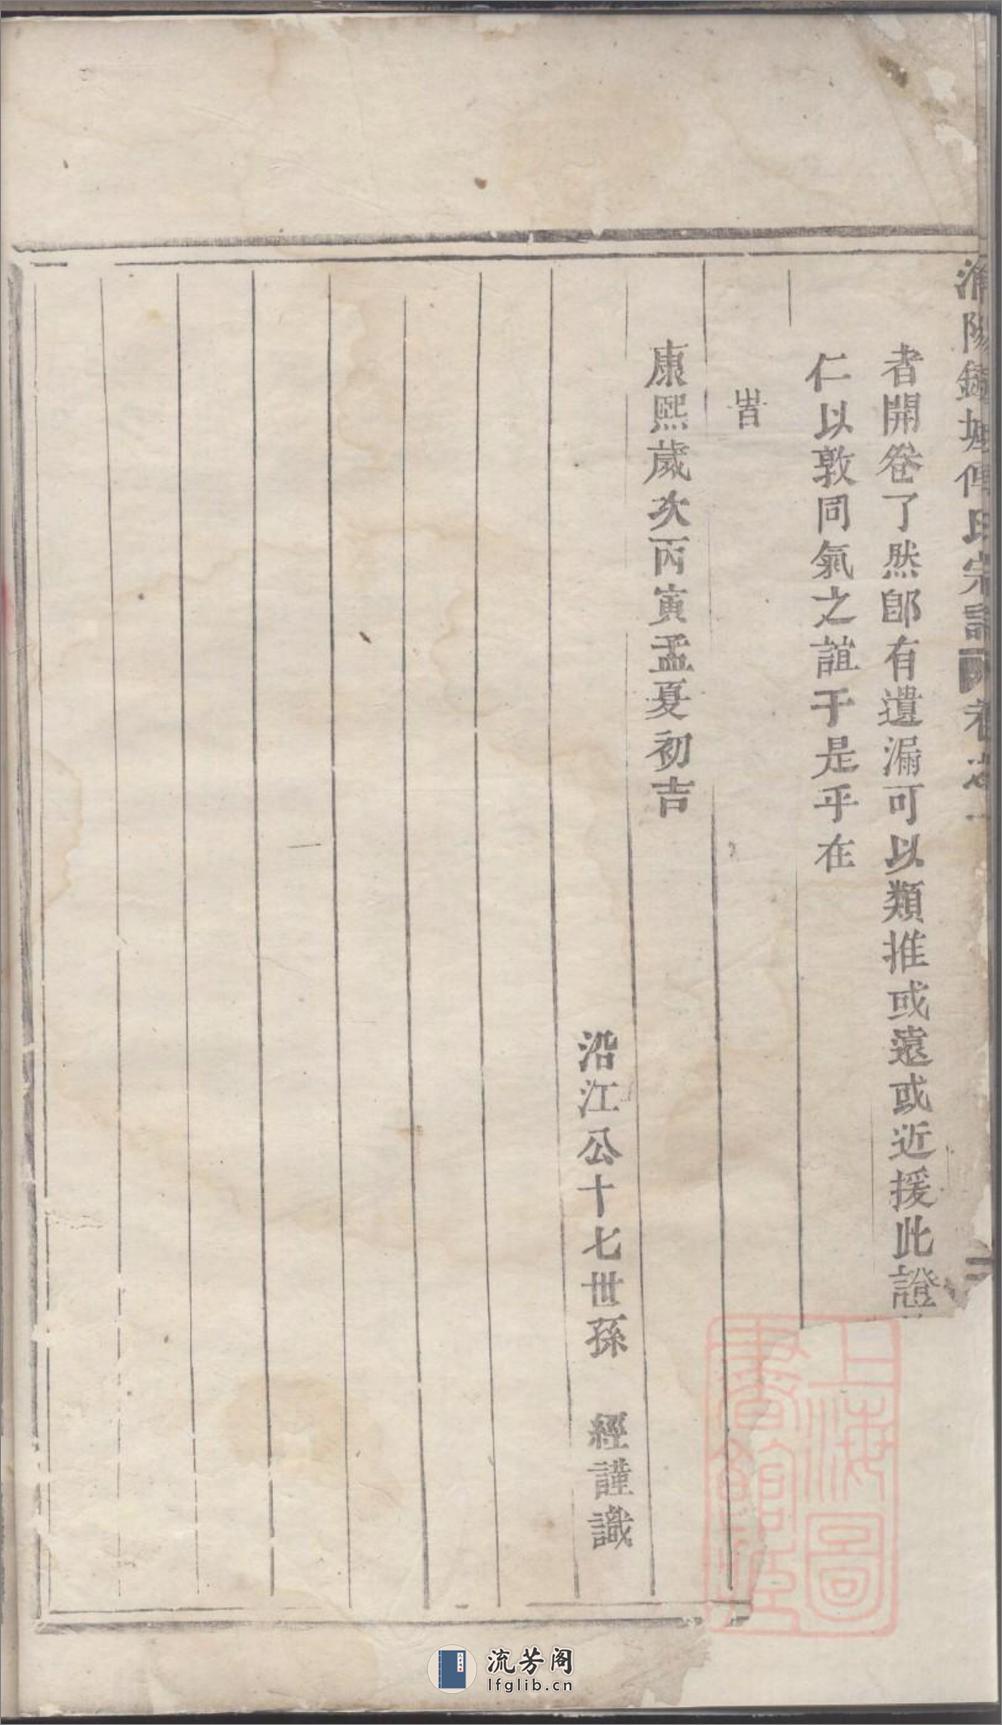 浦陽鍾塘傅氏宗譜 卷之一
者開卷了然卽有遺漏可以類推或遠或近援此證
仁以敦同氣之誼于是乎在
旹
康熙歲次丙寅孟夏初吉
沿江公十七世孫 經謹識
上海圖書館藏
流芳阁
lfglib.cn